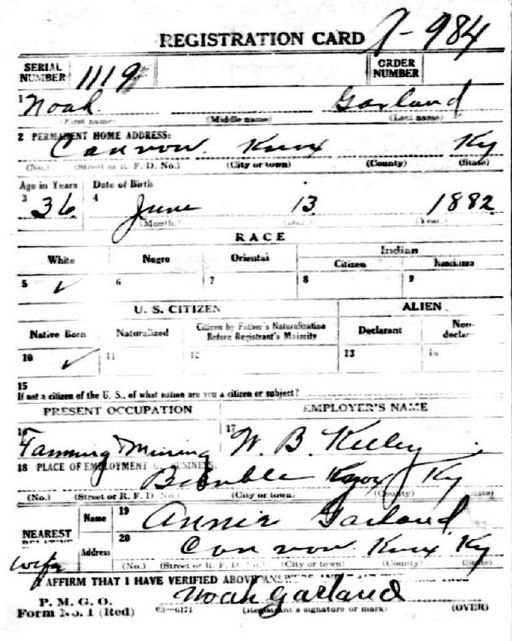 REGISTRATION CARD A-984
SERIAL NUMBER 1119 ORDER NUMBER
1 Noah Garland
(First name) (Middle name) (Last name)
2 PERMANENT HOME ADDRESS:
Cannon Knox Ky
(No.) (Street or R. F. D. No.) (City or town) (County) (State)
Age in Years Date of Birth
3 36 4 June 13 1882
(Month.) (Day.) (Year.)
RACE
White Negro Oriental Indian
Citizen Noncitizen
5 ✓ 6 7 8 9
U. S. CITIZEN ALIEN
Native Born Naturalized Citizen by Father's Naturalization Before Registrant's Majority Declarant Non-declarant
10 ✓ 11 12 13 14
15
If not a citizen of the U. S., of what nation are you a citizen or subject?
PRESENT OCCUPATION EMPLOYER'S NAME
16 Farming & Mining 17 W. B. Kelley
18 PLACE OF EMPLOYMENT OR BUSINESS:
Knox Ky
(No.) (Street or R. F. D. No.) (City or town) (County) (State)
NEAREST RELATIVE Name 19 Annie Garland
wife Address 20 Cannon Knox Ky
(No.) (Street or R. F. D. No.) (City or town) (County) (State)
I AFFIRM THAT I HAVE VERIFIED ABOVE ANSWERS AND THAT THEY ARE TRUE
P. M. G. O.
Form No. 1 (Red) 03—6171 Noah Garland
(Registrant's signature or mark) (OVER)